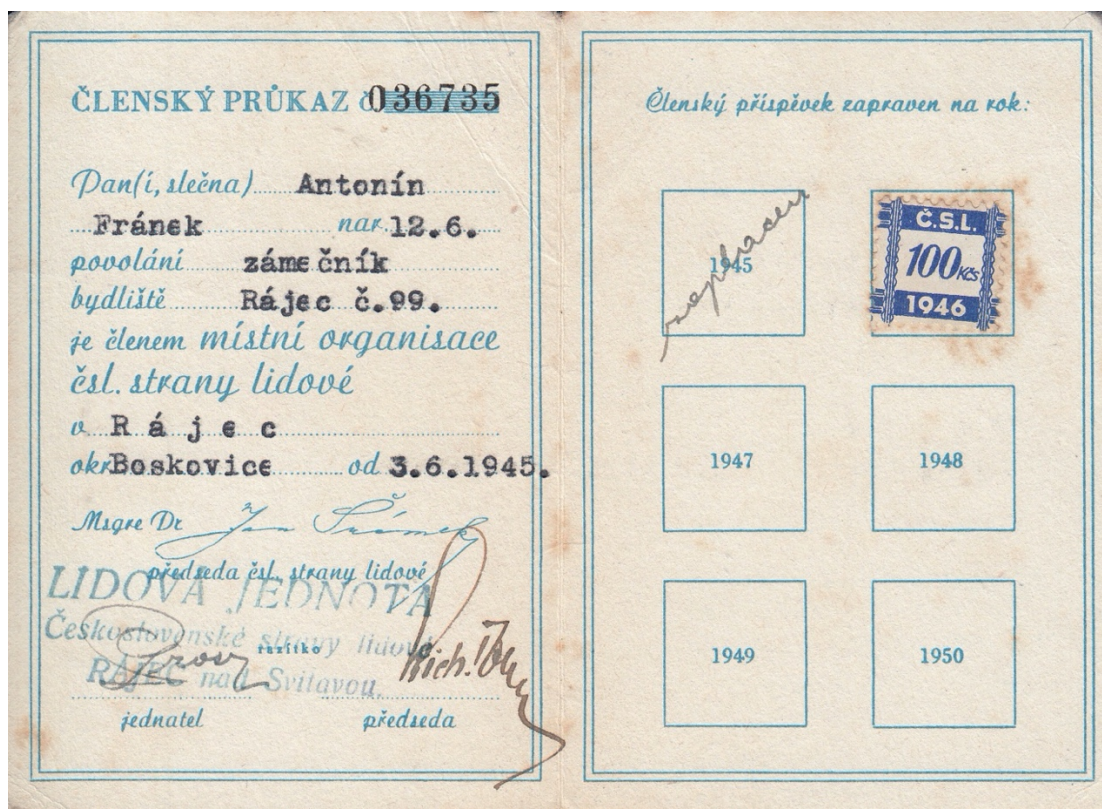 ČLENSKÝ PRŮKAZ č 036735
Pan(í, slečna) Antonín
Fránek nar. 12.6.
povolání zámečník
bydliště Rájec č.99.
je členem místní organisace
čsl. strany lidové
v R á j e c
okr Boskovice od 3.6.1945.
Msgre Dr Jan Šrámek
předseda čsl. strany lidové
LIDOVÁ JEDNOTA
Československé strany lidové
razítko
RÁJEC nad Svitavou.
Rich.
jednatel předseda
Členský příspěvek zapraven na rok:
1945
Č.S.L.
100 Kčs
1946
1947 1948
1949 1950